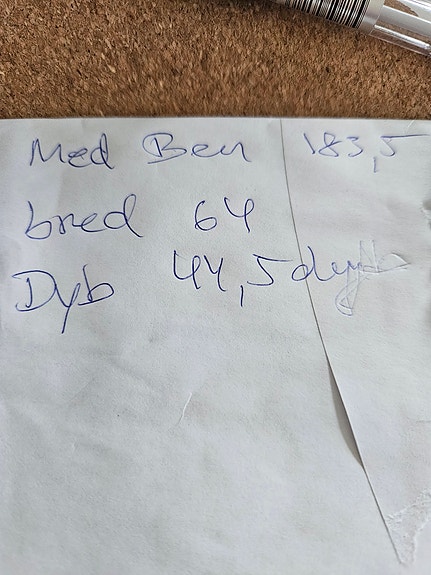 Med Ben 183,5
bred 64
Dyb 44,5